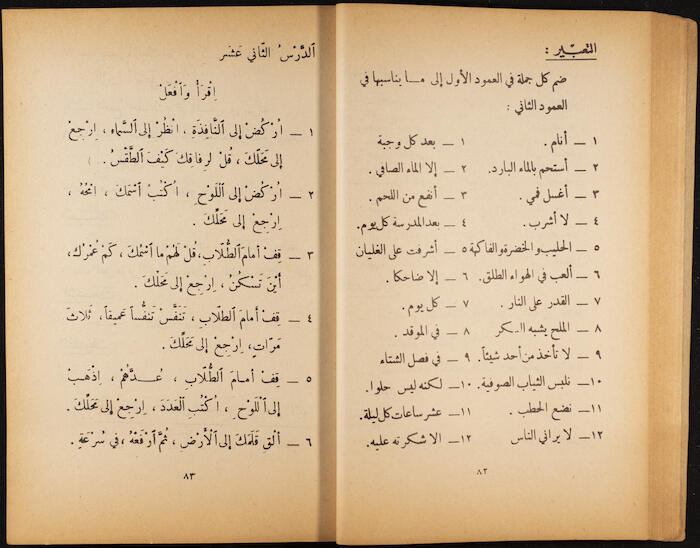 التعبير :
ضم كل جملة في العمود الأول إلى ما يناسبها في
العمود الثاني :
١ – أنام . ١ – بعد كل وجبة
٢ – أستحم بالماء البارد. ٢ – إلا الماء الصافي .
٣ – أغسل فمي . ٣ – أنفع من اللحم .
٤ – لا أشرب . ٤ – بعد المدرسة كل يوم .
٥ – الحليب والخضرة والفاكهة ٥ – أشرفت على الغليان
٦ – ألعب في الهواء الطلق. ٦ – إلا ضاحكا .
٧ – القدر على النار . ٧ – كل يوم .
٨ – الملح يشبه السكر ٨ – في الموقد .
٩ – لا تأخذ من أحد شيئاً. ٩ – في فصل الشتاء
١٠– نلبس الثياب الصوفية . ١٠– لكنه ليس حلوا .
١١– نضع الحطب . ١١– عشر ساعات كل ليلة .
١٢– لا يراني الناس ١٢– الا شكرته عليه .
٨٢
اَلدَّرْسُ الثَّاني عَشَر
اِقْرَأْ وَاَفْعَلْ
١ – اُرْكُضْ إِلى النَّافِذَةِ ، انْظُرْ إِلى السَّماءِ، اِرْجِعْ
إِلى مَحَلِّكَ، قُلْ لِرِفاقِكَ كَيْفَ الطَّقْسُ .
٢ – اُرْكُضْ إِلى اللَّوْحِ ، اُكْتُبْ اسْمَكَ ، امْحُهُ ،
اِرْجِعْ إِلى مَحَلِّكَ .
٣ – قِفْ أَمامَ الطُّلَّابِ، قُلْ لَهُمْ ما اَسْمُكَ ، كَمْ عُمْرُكَ،
أَيْنَ تَسْكُنُ ، اِرْجِعْ إِلى مَحَلِّكَ .
٤ – قِفْ أَمامَ الطُّلَّابِ ، تَنَفَّسْ تَنَفُّساً عَمِيقاً، ثَلاثَ
مَرّاتٍ، اِرْجِعْ إِلى مَحَلِّكَ .
٥ – قِفْ أَمامَ الطُّلَّابِ ، عُدَّهُمْ ، اِذْهَبْ
إِلى اللَّوْحِ ، اُكْتُبِ العَدَدَ ، اِرْجِعْ إِلى مَحَلِّكَ .
٦ – أَلْقِ قَلَمَكَ إِلى الْأَرْضِ ، ثُمَّ اَرْفَعْهُ ، في سُرْعَةٍ .
٨٣